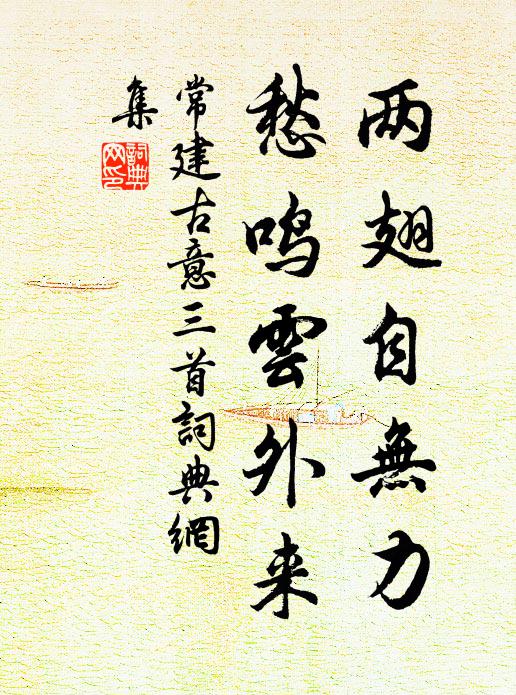 两翅自無力
愁鸣雲外来
常建古意三首詞典網
集
詞典網印